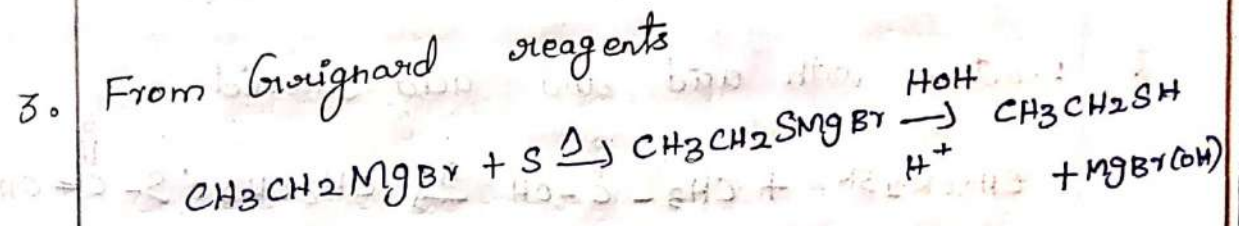 3. From Grignard reagents
CH3CH2MgBr + S Δ→ CH3CH2SMgBr HOH→ H+ CH3CH2SH
+ MgBr(OH)